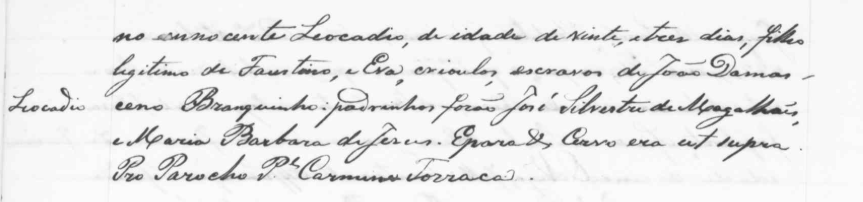 no ennocente Leocadio, de idade de vinte, e trez dias, filho
legitimo de Faustino, e Eva, crioulos, escravos de João Damas-
Leocadio ceno Branquinho: padrinhos forão José Silvestre de Magalhães,
e Maria Barbara de Jesus. Epara & Cervo era ut supra.
Pro Parocho Pe. Carmine Torraca.